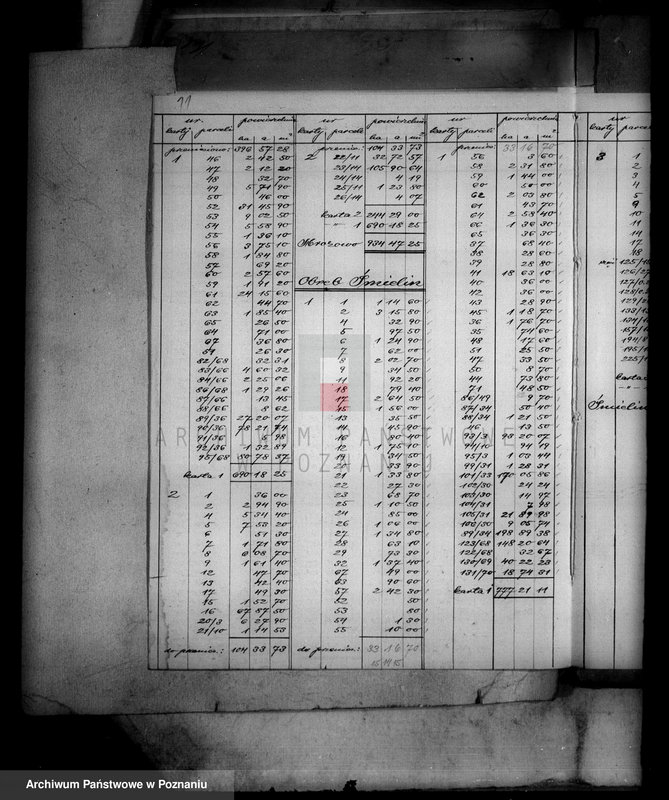 11
nr. powierzchnia
karty parceli ha a m²
przeniesiono: 396 57 28
1 46 2 42 80
47 2 12 20
48 32 70
49 5 71 90
50 46 00
52 31 45 90
53 9 02 50
54 5 58 90
55 1 36 10
56 3 75 10
58 1 84 80
57 69 20
60 2 57 60
59 1 91 20
61 24 15 60
62 44 70
63 1 85 40
65 26 50
64 71 00
67 36 80
59 26 30
82/68 32 31
83/66 4 60 32
84/66 2 25 06
86/68 1 29 26
87/66 13 45
88/66 8 62
89/36 27 20 07
90/36 78 21 74
91/36 5 98
92/36 1 32 89
95/68 80 18 37
karta 1 690 18 25
2 1 36 00
2 2 94 90
4 5 34 40
5 7 53 20
6 51 30
7 1 71 80
8 6 08 70
9 1 61 40
12 47 70
13 42 40
17 49 30
15 1 52 70
16 67 87 50
20/3 6 27 90
21/10 1 14 53
do przenies.: 104 33 73
nr powierzchnia
karty parceli ha a m²
przenies: 104 33 73
2 22/11 32 72 57
23/14 105 90 64
24/14 4 19
25/11 1 23 80
26/14 4 07
karta 2 244 29 00
" 1 690 18 25
Mrozowo 934 47 25
Obręb Śmielin
1 1 1 14 60
2 3 15 80
4 32 90
5 97 50
6 1 24 90
7 62 00
8 2 02 70
9 34 50
14 92 20
18 79 40
17 2 64 50
15 1 56 00
13 35 50
14 45 90
16 80 10
12 1 75 10
19 34 50
20 33 90
21 1 33 80
22 27 30
23 68 70
25 1 10 50
24 85 00
26 1 06 00
27 1 34 80
28 63 10
29 73 30
32 1 37 40
67 49 00
63 90 60
57 2 42 30
52 50
53 80
54 1 30
55 10 00
do przenies.: 33 16 70
15 14 15
nr powierzchnia
karty parceli ha a m²
przenies: 33 16 70
1 56 3 60
58 2 31 80
59 1 44 00
60 50 00
62 2 03 80
61 43 70
64 2 58 40
66 1 36 30
65 36 30
37 68 40
38 28 60
39 28 80
41 18 63 10
40 36 00
42 36 00
43 28 90
45 1 18 70
36 1 76 70
35 74 60
48 17 60
51 25 50
50 8 70
44 73 80
71 48 50
86/49 9 70
87/34 50 40
88/34 1 21 50
46 13 50
93/3 93 20 07
94/10 94 19
95/3 1 03 44
99/31 1 28 31
101/33 170 05 86
102/30 24 24
103/30 14 97
104/31 7 98
105/31 21 89 98
106/30 9 05 74
89/34 198 89 38
123/68 148 20 64
122/68 32 67
130/69 40 22 23
131/70 18 74 31
karta 1 777 21 11
nr
karty parce
3 1
2
3
4
5
9
10
11
14
17
18
karta
Śmielin
ARCHIWUM PAŃSTWOWE
W POZNANIU
Archiwum Państwowe w Poznaniu